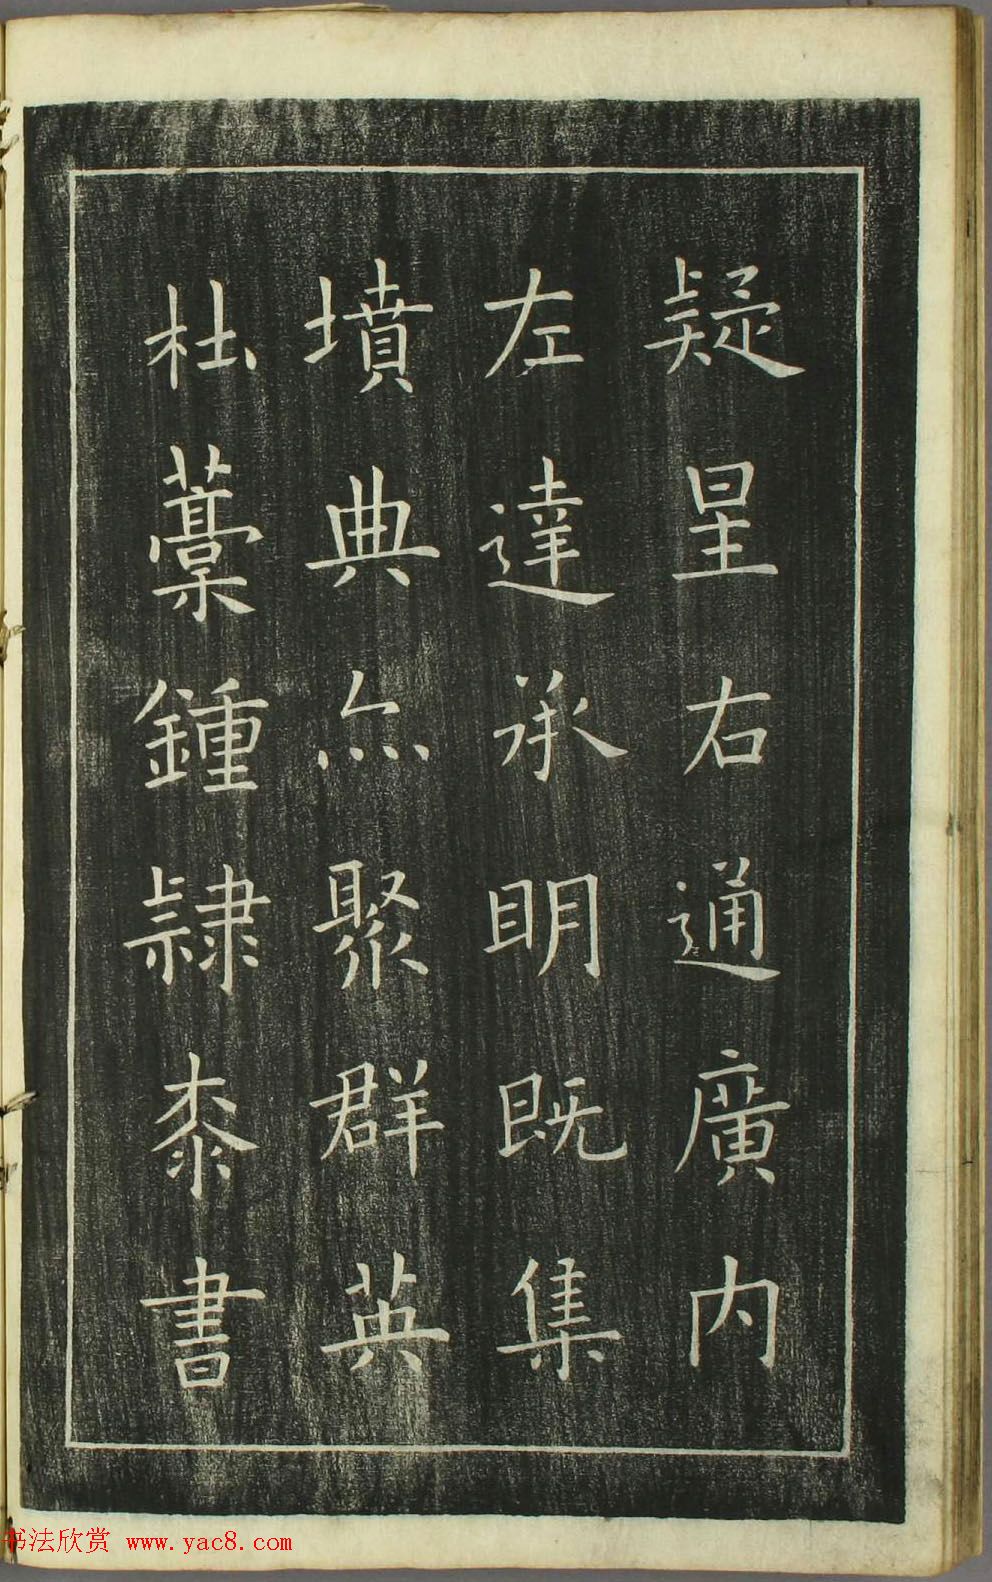 疑星右通廣内
左達承明既集
墳典亦聚群英
杜藁鍾隸桼書
书法欣赏 www.yac8.com